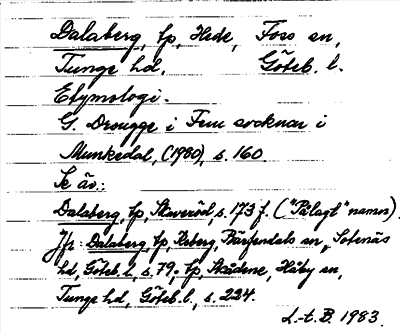 Dalaberg, lp, Hede, Foss sn,
Tunge hd. Göteb. l.
Etymologi.
G. Drougge i Fem socknar i
Munkedal, (1980), s. 160
Se äv.:
Dalaberg, lp, Skaveröd, s. 173 f. ("Pålagt" namn).
Jfr: Dalaberg, lp, Reberg, Bärfendals sn, Sotenäs
hd, Göteb. l, s. 79. lp, Skådene, Håby sn,
Tunge hd, Göteb. l., s. 224.
L-t. B. 1983.